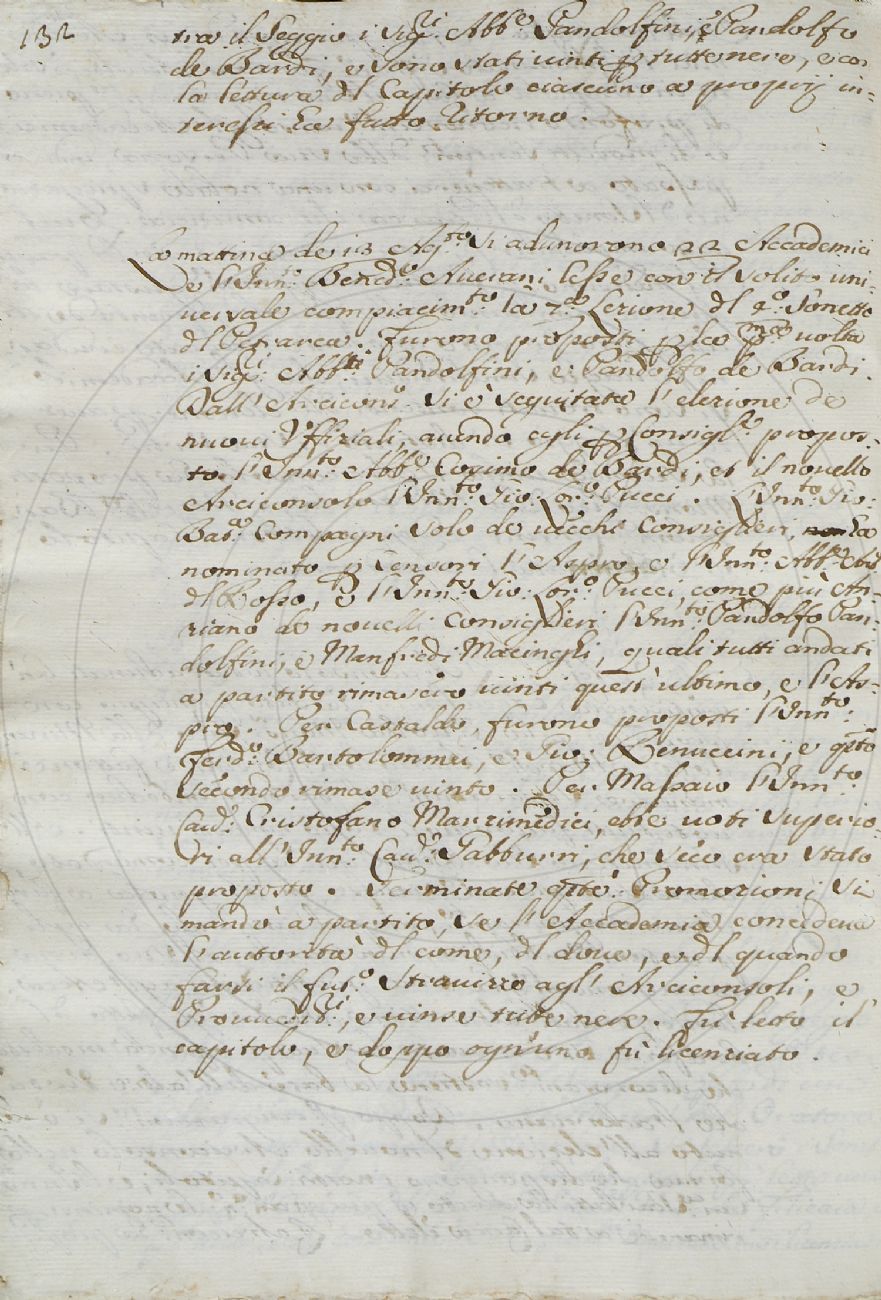 132
tra il Seggio i Sig:ri Abb:e Pandolfini, e Pandolfo
de Bardi, e sono stati vinti p tutte nere, e con
la lettura dl Capitolo ciascuno a proprij in-
teressi ha fatto ritorno.
La mattina de 13 Ag:to si adunorono 22 Accademici
e l'Inn:to Bened:o Averani lesse con il solito uni-
versale compiacim:to la 7:a Lezione dl 4:o Sonetto
dl Petrarca. Furono proposti p la p:ma volta
i Sig:ri Abb:ti Pandolfini, e Pandolfo de Bardi.
Dall' Arcicons:o si è seguitata l'elezione de
nuovi Uffiziali, avendo egli p Consigl:re propos-
to l'Inn:to Abb:e Cosimo de Bardi, et il novello
Arciconsolo l'Inn:to Gio: Lor:o Pucci. L'Inn:to Gio:
Bat:a Compagni solo de vecchi Consiglieri, non ha
nominato p Censori l'Aspro, e l'Inn:to Abb:e
dl Rosso, e l'Inn:to Gio: Lor:o Pucci, come più An-
ziano de novelli Consiglieri l'Inn:to Pandolfo Pan-
dolfini, e Manfredi Macinghi, quali tutti andati
a partito rimasero vinti quest' ultimo, e l'As-
pro. Per Castaldo, furono proposti l'Inn:to
Ferd:o Bartolommei, e Gio: Rinuccini, e q:sto
secondo rimase vinto. Per Massaio l'Inn:to
Cav:e Cristofano Marzimedici, ebbe voti superio-
ri all' Inn:to Cav:e Gabburri, che seco era stato
proposto. Terminate q:ste Promozioni si
mandò a partito, se l'Accademia concedeva
l'autorità dl come, dl dove, e dl quando
farsi il fut:o Stravizzo agl' Arciconsoli, e
Provved:ri, e vinse tutte nere. Fù letto il
capitolo, e doppo ogn'uno fù licenziato.